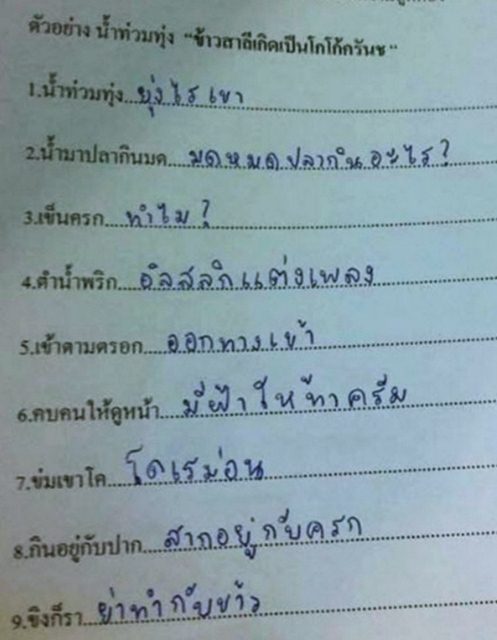 ตัวอย่าง น้ำท่วมทุ่ง "ข้าวสาลีเกิดเป็นโกโก้ครันช"
1.น้ำท่วมทุ่ง ยุ่งไรเขา
2.น้ำมาปลากินมด มดหมดปลากินอะไร?
3.เข็นครก ทำไม?
4.ตำน้ำพริก อิสสลิกแต่งเพลง
5.เข้าตามตรอก ออกทางเข้า
6.คบคนให้ดูหน้า มีฝ้าให้ทาครีม
7.ข่มเขาโค โดเรม่อน
8.กินอยู่กับปาก สากอยู่กับครก
9.ขิงก็รา ย่าทำกับข้าว